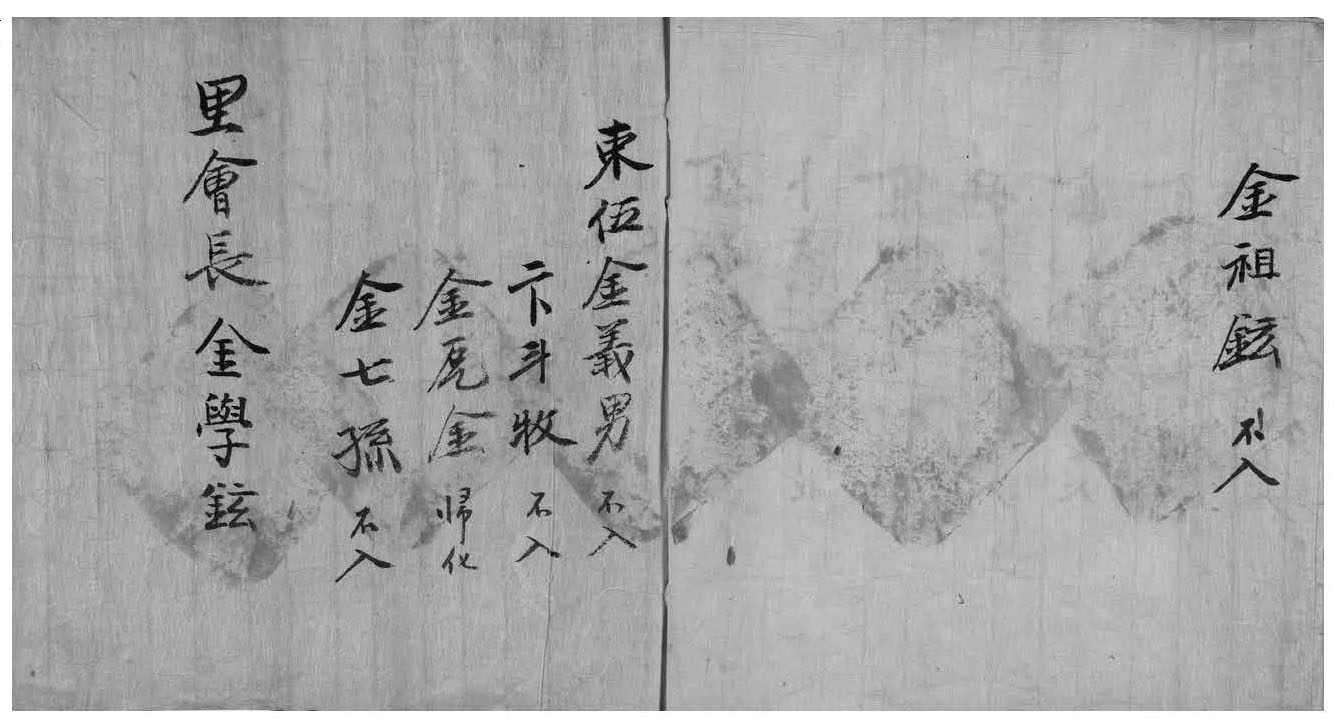 金祖鉉 不入
東伍金義男 不入
卞斗牧 不入
金虎金 歸化
金七孫 不入
里會長 金學鉉